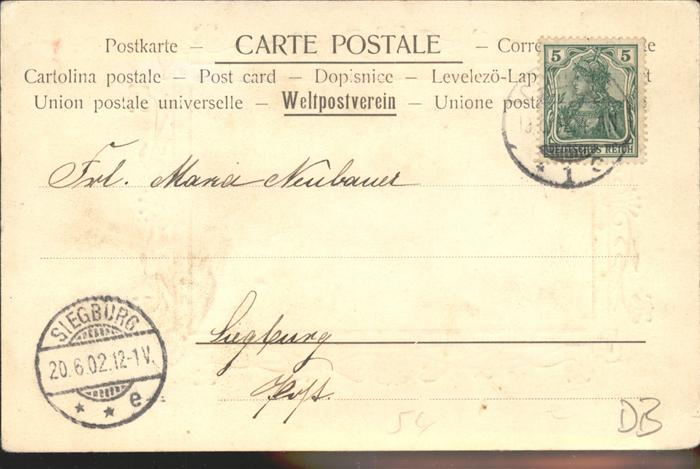 Postkarte – CARTE POSTALE – Corre
Cartolina postale – Post card – Dopisnice – Levelező-Lap
Union postale universelle – Weltpostverein – Unione posta
5 5
DEUTSCHES REICH
1 c
Frl. Maria Neubauer
SIEGBURG
20.6.02.12-1V.
* * e
Siegburg
54
DB